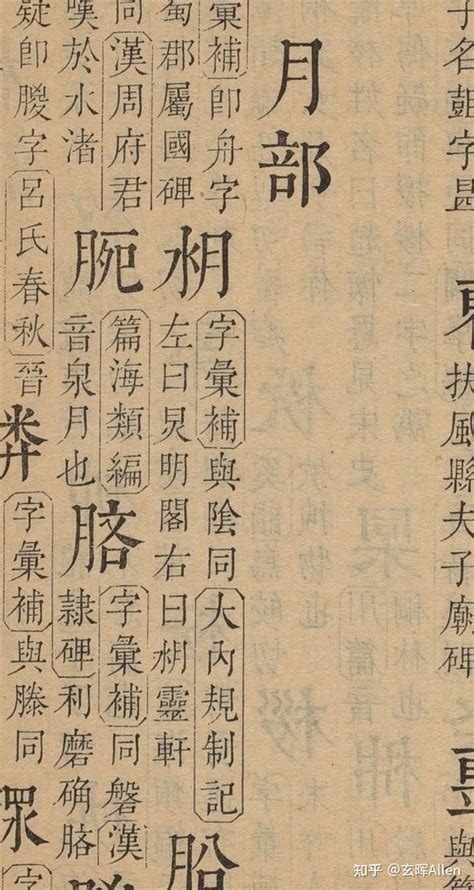 扶風縣夫子廟碑
與
月部
彙補即舟字
字彙補與陰同大內規制記
郡屬國碑
左曰炅明閣右曰靈軒
同漢周府君
篇海類編
音泉月也
字彙補同磐漢
隸碑利磨确胳
嘆於水渚
疑即朡字呂氏春秋晉
字彙補與滕同
字
知乎 @玄晖Allen